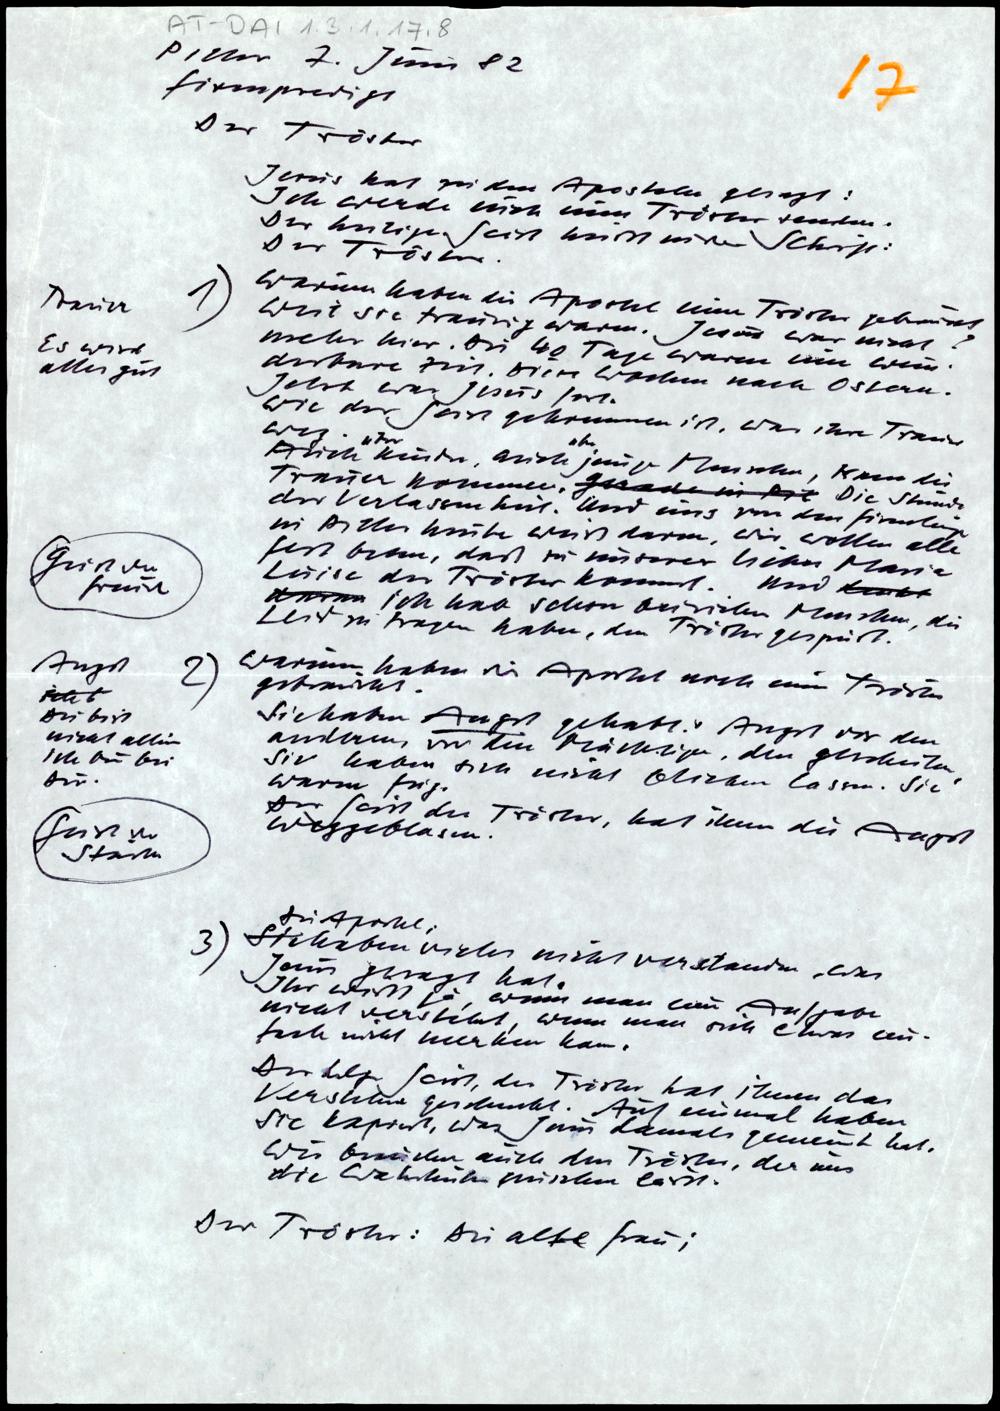 AT-DAI 1.3.1.17.8
17
Piller 7. Juni 82
Firmpredigt
Der Tröster
Jesus hat zu den Aposteln gesagt:
Ich werde euch einen Tröster senden.
Der heilige Geist heißt in der Schrift:
Der Tröster.
Trauer
Es wird
alles gut
1) Warum haben die Apostel einen Tröster gebraucht?
Weil sie traurig waren. Jesus war nicht
mehr hier. Die 40 Tage waren eine wun-
derbare Zeit. Diese Wochen nach Ostern.
Jetzt war Jesus fort.
Wie der Geist gekommen ist, war ihre Trauer
weg.
Auch über Kinder, auch über junge Menschen, kann die
Trauer kommen. gerade in der Die Stunde
der Verlassenheit. Und uns von den Firmlingen
in Piller heute weiß darum, wir wollen alle
fest beten, daß zu unserer lieben Maria
Luise der Tröster kommt. Und
daran ich hab schon bei vielen Menschen, die
Leid zu tragen haben, den Tröster gespürt.
Geist der
Freude
Angst
Du bist
nicht allein
ich bin bei
dir.
2) Warum haben die Apostel noch einen Tröster
gebraucht.
Sie haben Angst gehabt: Angst vor den
anderen, vor den Mächtigen, den gescheiten,
Sie haben sich nicht blicken lassen. Sie
waren feig.
Der Geist der Tröster, hat ihnen die Angst
weggeblasen.
Geist der
Stärke
3) Die Apostel,
Sie haben vieles nicht verstanden, was
Jesus gesagt hat.
Ihr wißt ja, wenn man eine Aufgabe
nicht versteht, wenn man sich etwas ein-
fach nicht merken kann.
Der hlge Geist, der Tröster hat ihnen das
Verstehen geschenkt. Auf einmal haben
sie kapiert, was Jesus damals gemeint hat.
Wir brauchen auch den Tröster, der uns
die Wahrheit spüren läßt.
Der Tröster: Die alte Frau;